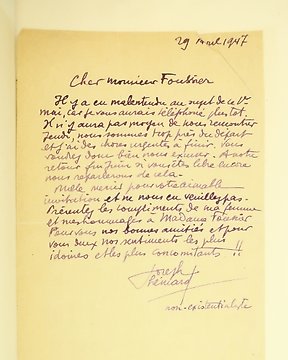 29 Avril 1947
Cher monsieur Fournier
Il y a eu malentendu au sujet de ce
mai, car je vous aurais téléphoné plus tôt.
Il n'y aura pas moyen de nous rencontrer
Jeudi, nous sommes trop près du départ
et j'ai des choses urgentes à finir. Vous
voudrez donc bien nous excuser. A notre
retour fin Juin si vous êtes libre encore
nous reparlerons de cela -
Mille mercis pour votre aimable
invitation et ne nous en veuillez pas.
Présentez les compliments de ma femme
et mes hommages à Madame Fournier
Pour vous nos bonnes amitiés et pour
vous deux nos sentiments les plus
idoines et les plus concomitants !!
Joseph
non-existentialiste